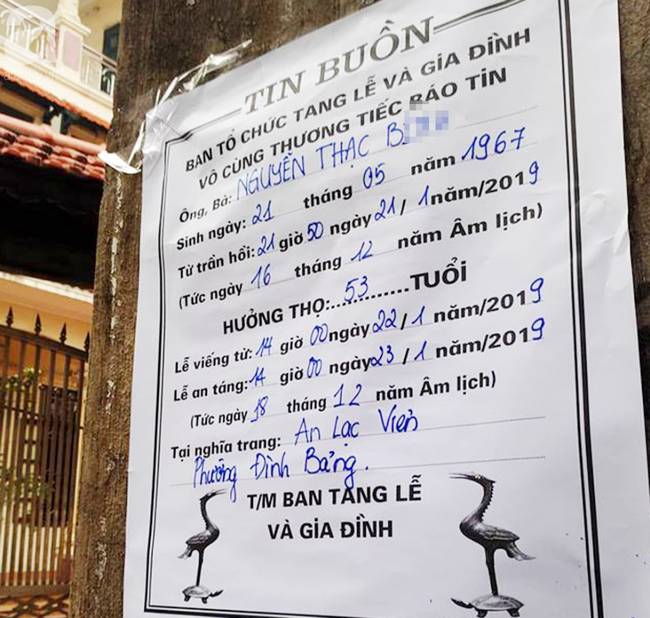 TIN BUỒN
BAN TỔ CHỨC TANG LỄ VÀ GIA ĐÌNH
VÔ CÙNG THƯƠNG TIẾC BÁO TIN
Ông, Bà: NGUYỄN THẠC
Sinh ngày: 21 tháng 05 năm 1967
Từ trần hồi: 21 giờ 50 ngày 21 / 1 năm/2019
(Tức ngày 16 tháng 12 năm Âm lịch)
HƯỞNG THỌ:.....53.......TUỔI
Lễ viếng từ: 14 giờ 00 ngày 22 / 1 năm/2019
Lễ an táng: 14 giờ 00 ngày 23 / 1 năm/2019
(Tức ngày 18 tháng 12 năm Âm lịch)
Tại nghĩa trang: An Lạc Viên
Phường Đình Bảng.
T/M BAN TANG LỄ
VÀ GIA ĐÌNH